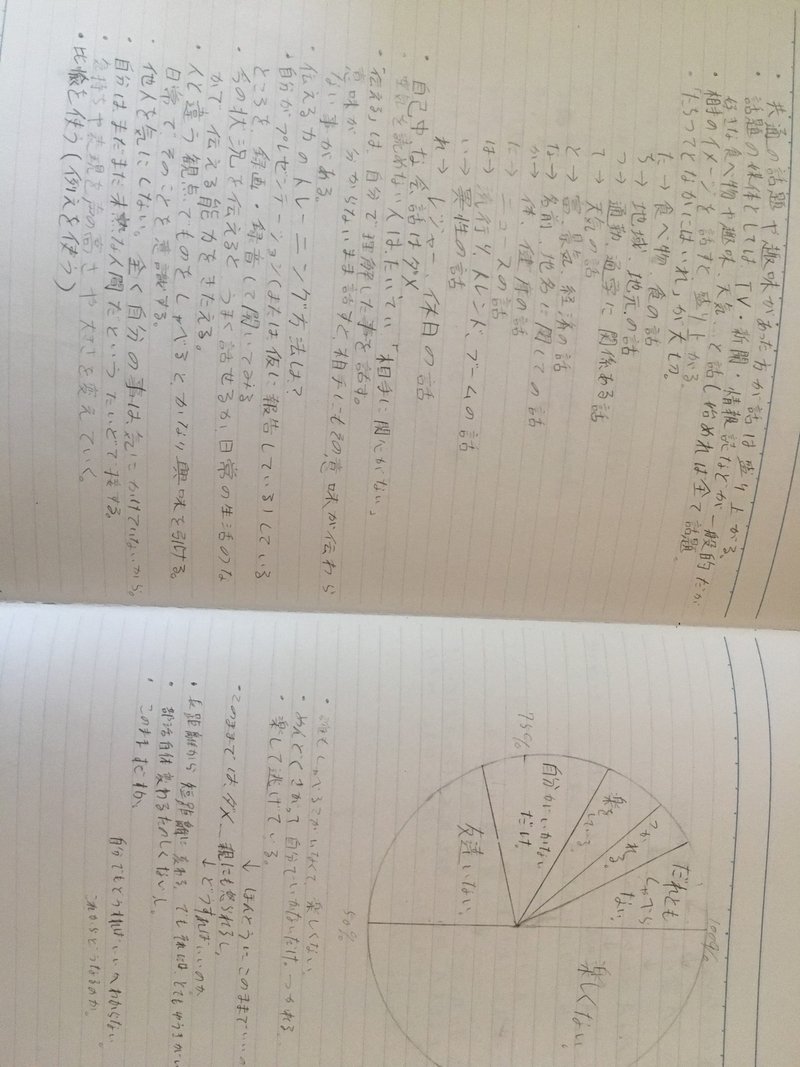 ・共通の話題や趣味があった方が話は盛り上がる。
・話題の媒体としては TV・新聞・情報誌などが一般的だが
好きな食べ物や趣味、天気…と話し始めれば全て話題。
・相手のイメージを話すと盛り上がる。
「たちつてとなかにはいれ」が大切。
た→食べ物、食の話
ち→地域、地元の話
つ→通勤、通学に関係ある話
て→天気の話
と→富、景気、経済の話
な→名前、地名に関しての話
か→体、健康の話
に→ニュースの話
は→流行り、トレンド、ブームの話
い→異性の話
れ→レジャー、休日の話
・自己中な会話はダメ
空気を読めない人は、たいてい「相手に関心がない」
・「伝える」は、自分で理解した事を話す。
意味が分からないまま話すと、相手にもその意味が伝わら
ない事がある。
・伝える力のトレーニング方法は?
自分がプレゼンテーション(または仮に報告している)している
ところを録画・録音して聞いてみる
・今の状況を伝えると、うまく話せるが、日常の生活のな
かで、伝える能力をきたえる。
・人と違う観点でものをしゃべるとかなり興味を引ける。
日常で、そのことを意識する。
・他人を気にしない。全く自分の事は、気にかけていないから。
・自分はまだまだ未熟な人間だというたいどで接する。
・気持ちや表現を声の高さや大きさを変えていく。
・比喩を使う(例えを使う)
100%
75%
50%
だれとも
しゃべら
ない。
つかれる。
楽を
している。
自分がにいかない
だけ。
友達いない。
楽しくない。
しゃべるこがいなくて楽しくない
・めんどくさがって自分でいかないだけ。つかれる
・楽して逃げている。
↓ほんとうにこのままでいいの
・このままでは、ダメ、親にも怒られるし、
↓どうすればいいのか。
・長距離から短距離に変わる。でも
・部活自体変わるたのしくないし。
・このまま
自分でもどうすればいいかわからない。
これからどうなるのか。